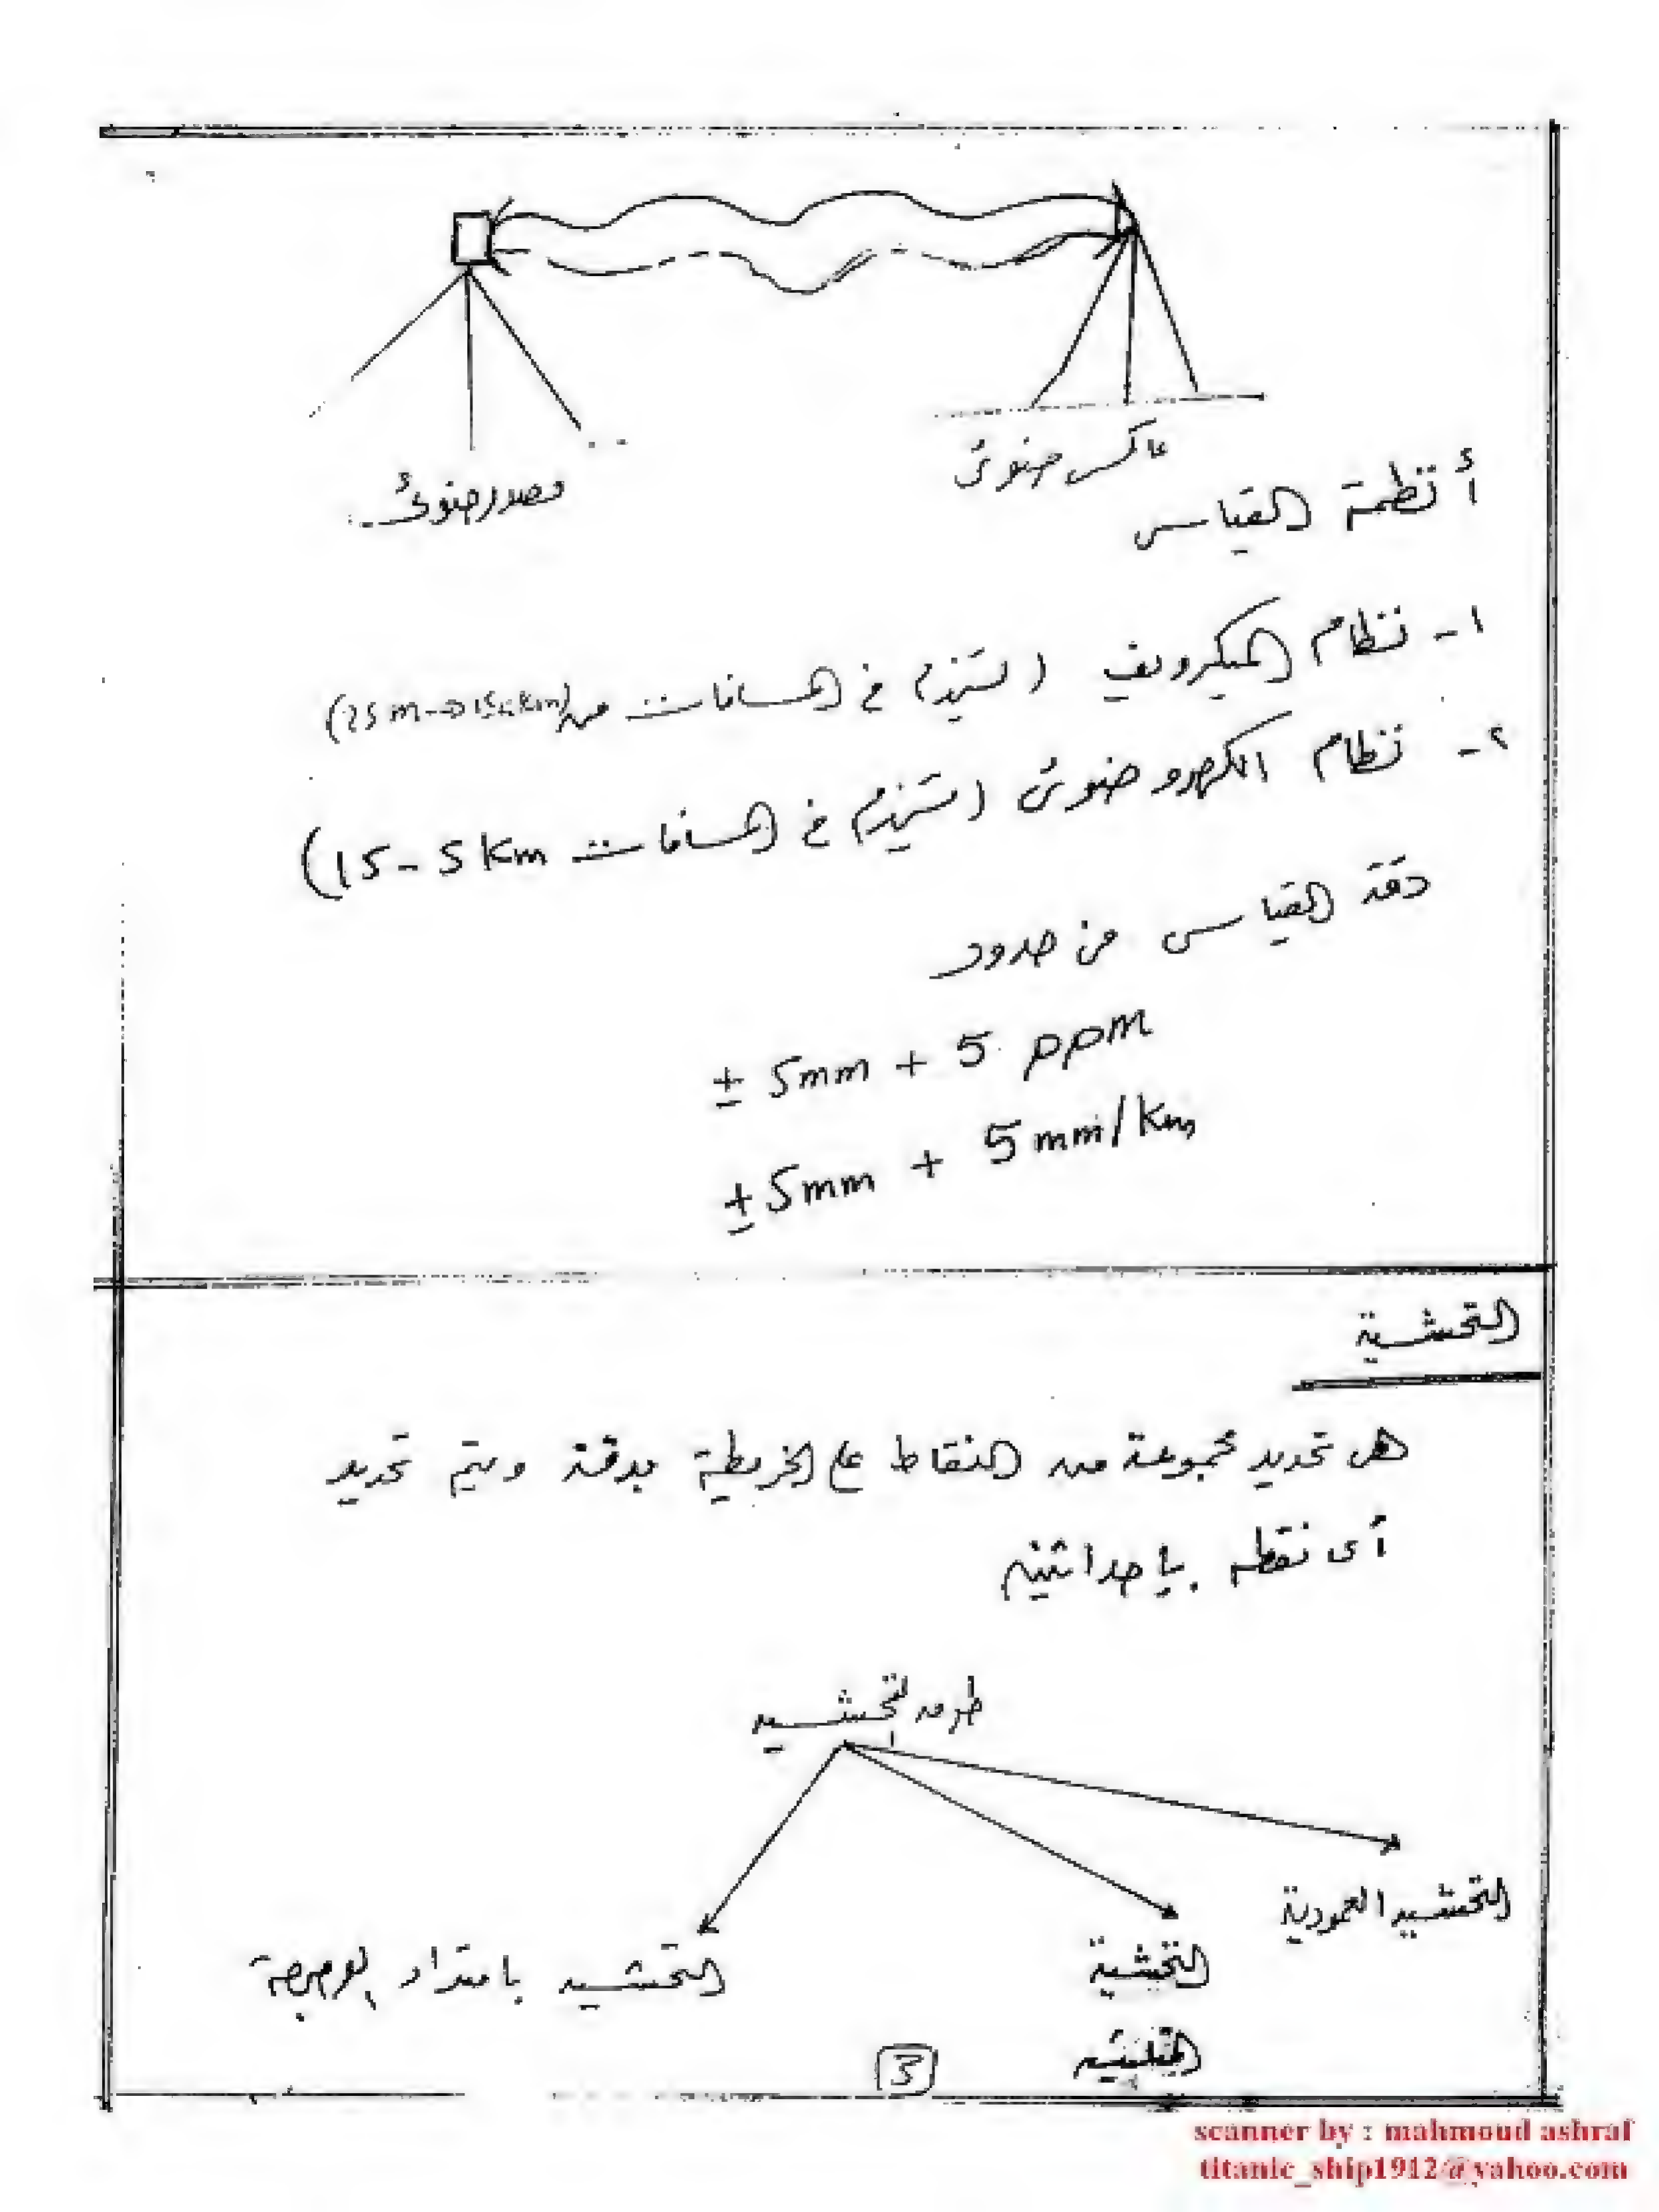 عاكس ضوئى
مصدر ضوئى
أنظمة القياس
١- نظام الميكرويف (تستخدم فى المسافات من (25m → 150km)
٢- نظام الكهروضوئى (تستخدم فى المسافات 15 - 5 Km)
دقة القياس من حدود
± 5mm + 5 ppm
± 5mm + 5 mm/Km
التحشية
هى تحديد مجموعة من النقاط على الخريطة بدقة ويتم تحديد
أى نقطه بإحداثيين
طرق التحشيه
التحشيه العمودية
التحشية
المثلثيه
التحشيه بامتداد
3
scanner by : mahmoud ashraf
titanic_ship1912@yahoo.com